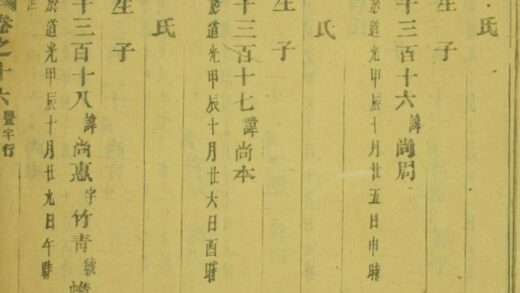 氏
生子
十三百十六諱尚
於道光甲辰十月廿五日申時
氏
生子
十三百十七諱尚本
於道光甲辰十月廿六日酉時
氏
生子
十三百十八諱尚惠字竹青號
於道光甲辰十月廿九日午時
卷之十六 豐字行